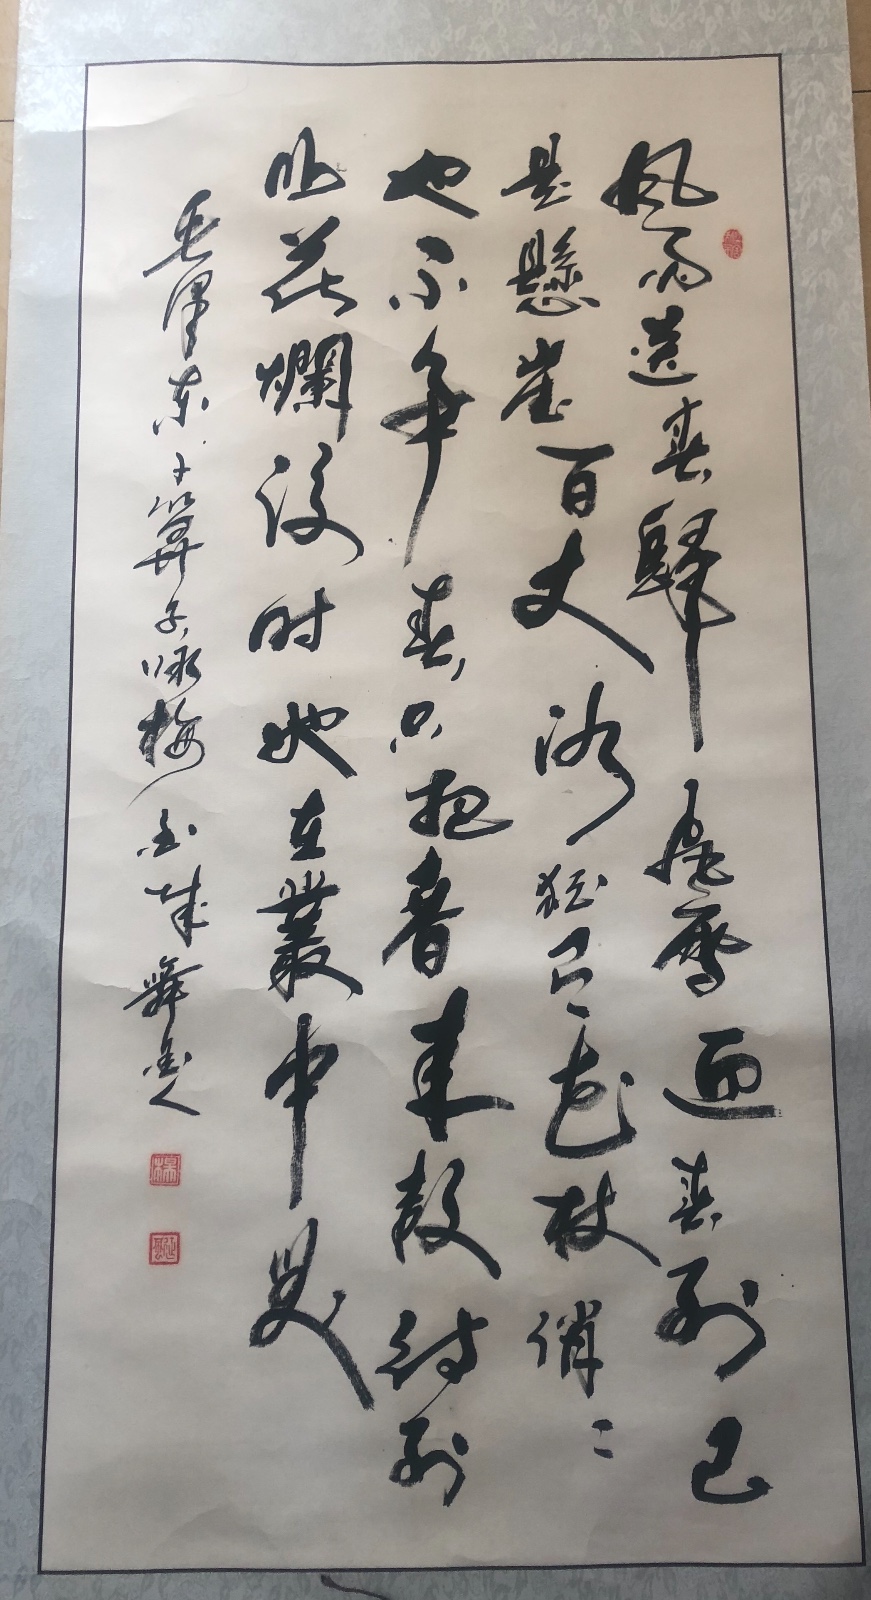 風雨送春歸飛雪迎春到已
是懸崖百丈冰猶有花枝俏々
也不争春只把春來報待到
山花爛漫时她在叢中笑
毛澤東卜算子咏梅